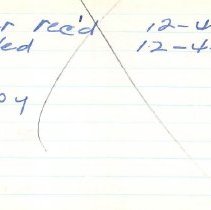 r rec'd 12-4
led 12-4-
oy